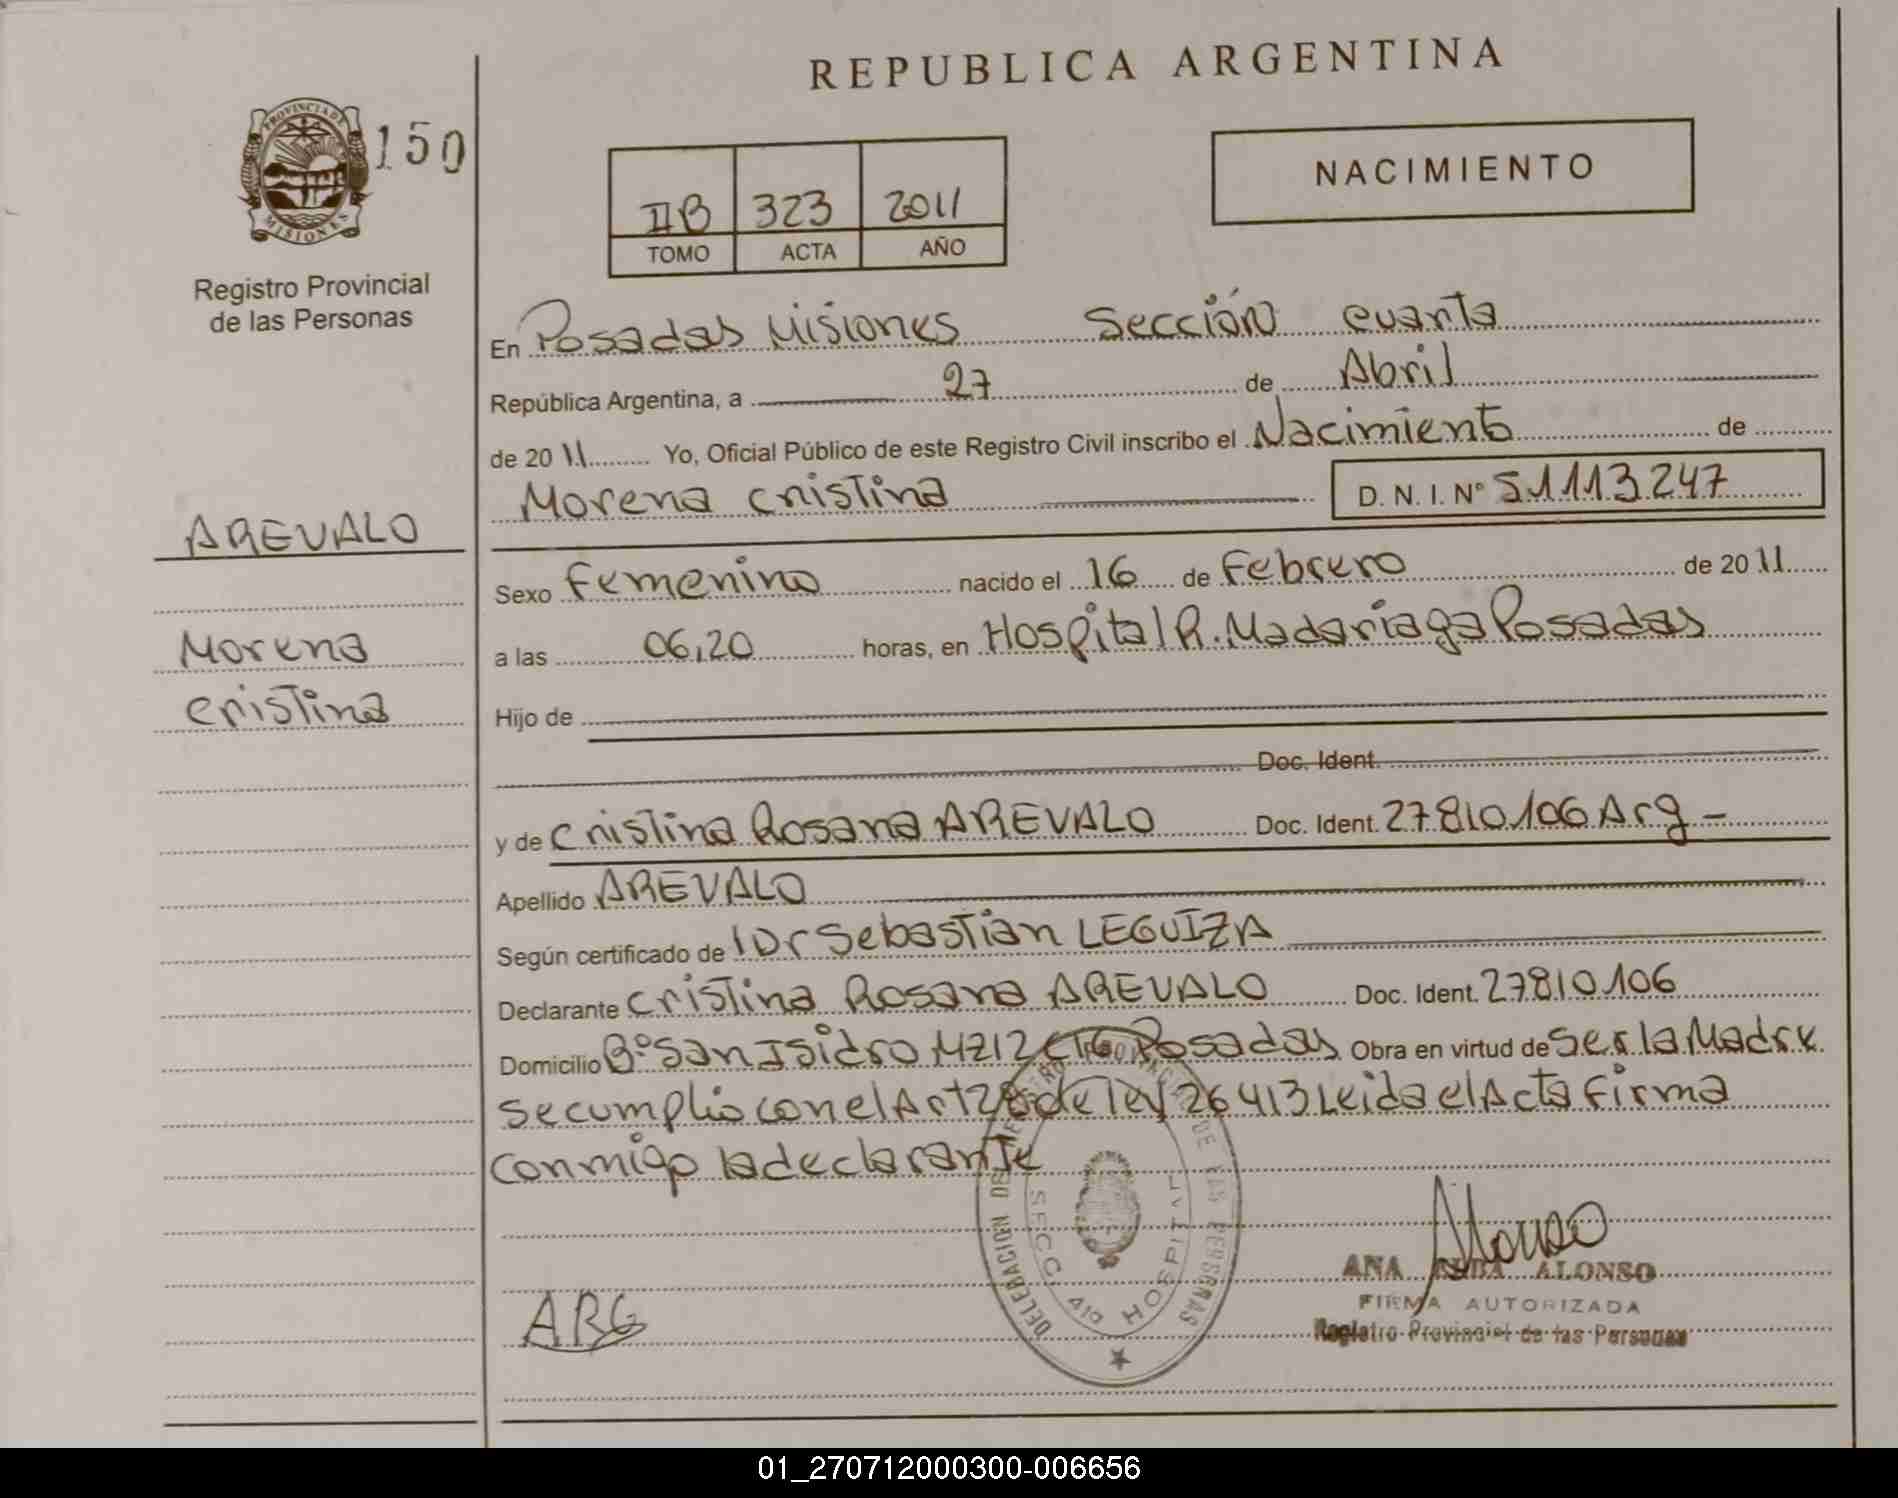 REPUBLICA ARGENTINA
PROVINCIA DE MISIONES
150
NACIMIENTO
IIB 323 2011
TOMO ACTA AÑO
Registro Provincial
de las Personas
En Posadas Misiones Sección cuarta
República Argentina, a 27 de Abril
de 2011 Yo, Oficial Público de este Registro Civil inscribo el Nacimiento de
Morena Cristina D. N. I. Nº 51113247
AREVALO
Morena
Cristina
Sexo Femenino nacido el 16 de Febrero de 2011
a las 06,20 horas, en Hospital R. Madariaga Posadas
Hijo de
Doc. Ident.
y de Cristina Rosana AREVALO Doc. Ident. 27810106 Arg -
Apellido AREVALO
Según certificado de Dr Sebastian LEGUIZA
Declarante Cristina Rosana AREVALO Doc. Ident. 27810106
Domicilio Bº San Isidro MZ12 C16 Posadas Obra en virtud de Ser la Madre
Se cumplio con el Art 28 de ley 26413 Leida el Acta Firma
conmigo la declarante
DELEGACION DE REGISTRO PROVINCIAL DE LAS PERSONAS
SECC. 4ta HOSPITAL
ARG
ANA ALONSO
FIRMA AUTORIZADA
Registro Provincial de las Personas
01_270712000300-006656